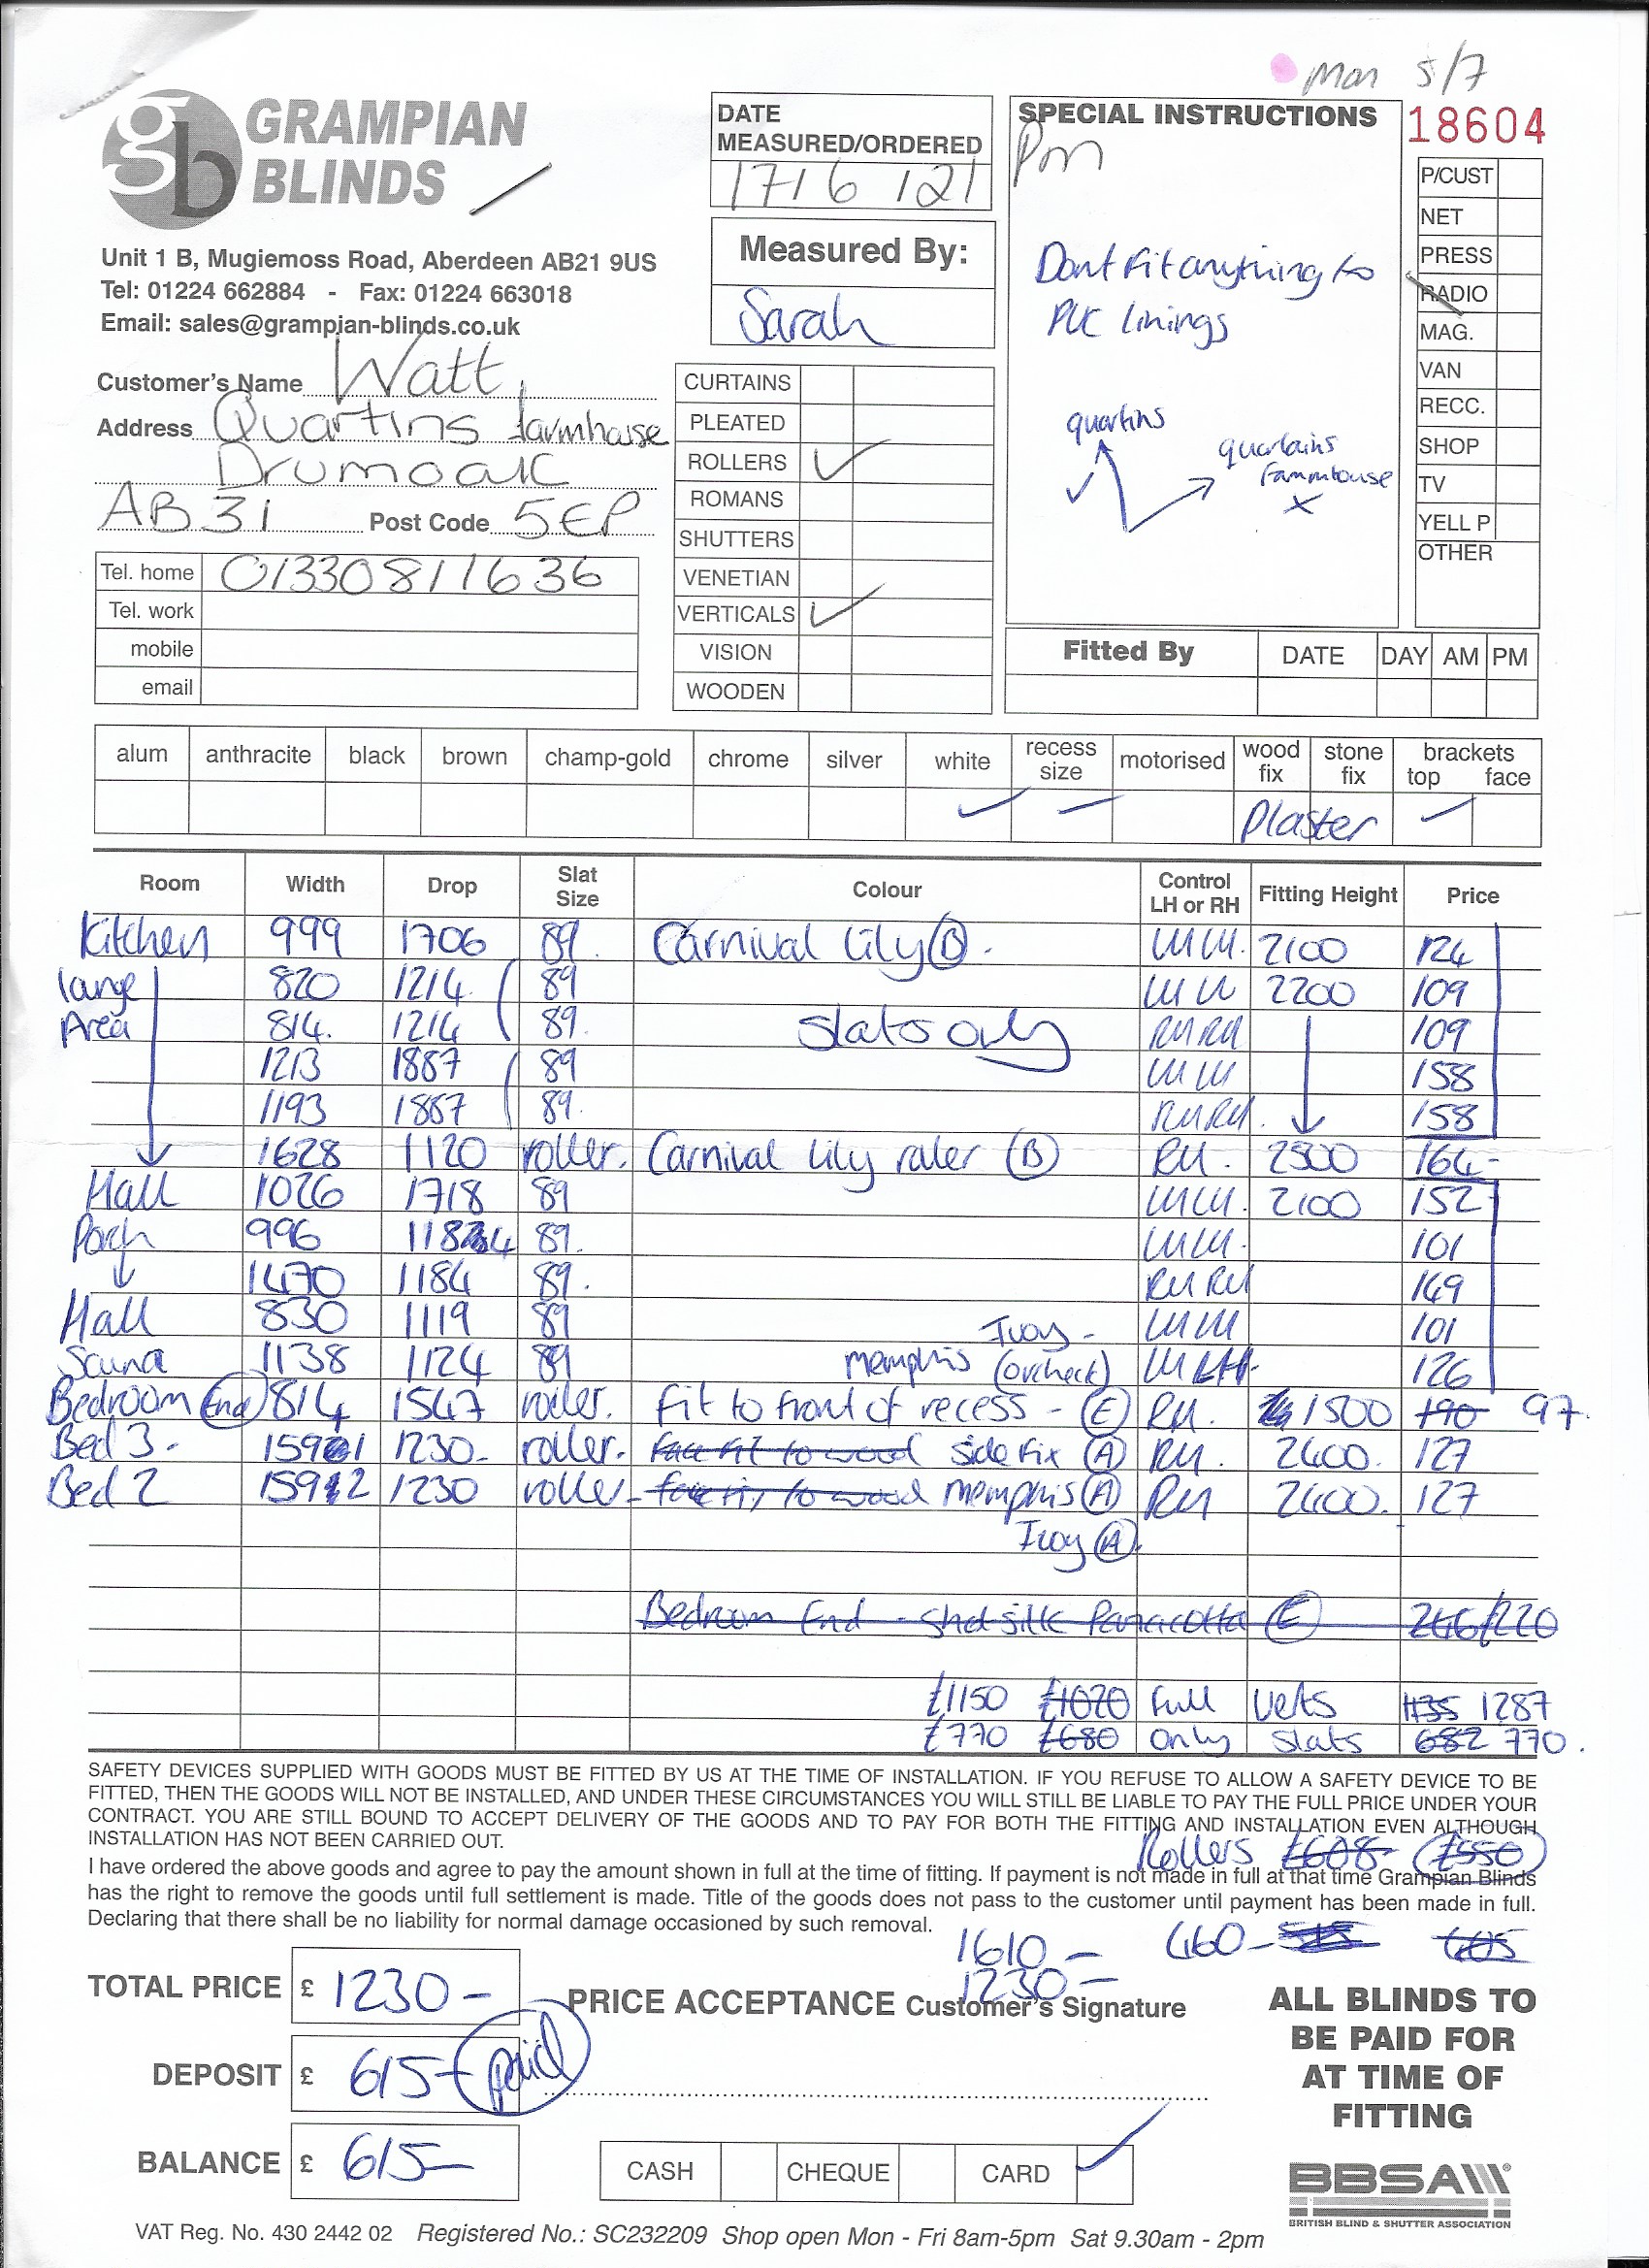 Mon 5/7
gb GRAMPIAN BLINDS
Unit 1 B, Mugiemoss Road, Aberdeen AB21 9US
Tel: 01224 662884 - Fax: 01224 663018
Email: sales@grampian-blinds.co.uk
Customer's Name Watt
Address Quartins farmhouse
Drumoak
AB31 Post Code 5EP
Tel. home 01330811636
Tel. work
mobile
email
DATE
MEASURED/ORDERED
17/6/21
Measured By:
Sarah
CURTAINS
PLEATED
ROLLERS ✓
ROMANS
SHUTTERS
VENETIAN
VERTICALS ✓
VISION
WOODEN
SPECIAL INSTRUCTIONS
Pm
Dont fit anything to
PVC linings
quartins
✓
quartains
Farmhouse
x
18604
P/CUST
NET
PRESS
RADIO
MAG.
VAN
RECC.
SHOP
TV
YELL P
OTHER
Fitted By DATE DAY AM PM
alum anthracite black brown champ-gold chrome silver white recess size motorised wood fix stone fix brackets top face
✓ ✓ Plaster ✓
Room Width Drop Slat Size Colour Control LH or RH Fitting Height Price
Kitchen 999 1706 89 Carnival Lily (B) LH LH. 2100 124
large 820 1214 89 LH LH 2200 109
Area 814 1214 89 Slats only RH RH 109
1213 1887 89 LH LH 158
1193 1887 89 RH RH 158
1628 1120 roller. Carnival lily roller (B) RH. 2300 164-
Hall 1026 1718 89 LH LH. 2100 152
Porch 996 1184 89. LH LH. 101
1470 1184 89. RH RH 149
Hall 830 1119 89 Ivory - LH LH 101
Sauna 1138 1124 89 Memphis (orcheck) LH LH 126
Bedroom (End) 814 1547 roller. fit to front of recess - (E) RH. 1500 190 97
Bed 3. 1591 1230- roller. face fit to wood side fix (A) RH. 2400. 127
Bed 2 1592 1230 roller- to wood Memphis (A) RH 2400. 127
Ivory (A)
Bedroom End - shot silk Panacotta (E) 266/220
£1150 £1020 full verts 1135 1287
£770 £680 only slats 682 770.
SAFETY DEVICES SUPPLIED WITH GOODS MUST BE FITTED BY US AT THE TIME OF INSTALLATION. IF YOU REFUSE TO ALLOW A SAFETY DEVICE TO BE
FITTED, THEN THE GOODS WILL NOT BE INSTALLED, AND UNDER THESE CIRCUMSTANCES YOU WILL STILL BE LIABLE TO PAY THE FULL PRICE UNDER YOUR
CONTRACT. YOU ARE STILL BOUND TO ACCEPT DELIVERY OF THE GOODS AND TO PAY FOR BOTH THE FITTING AND INSTALLATION EVEN ALTHOUGH
INSTALLATION HAS NOT BEEN CARRIED OUT.
Rollers £608- £550
I have ordered the above goods and agree to pay the amount shown in full at the time of fitting. If payment is not made in full at that time Grampian Blinds
has the right to remove the goods until full settlement is made. Title of the goods does not pass to the customer until payment has been made in full.
Declaring that there shall be no liability for normal damage occasioned by such removal.
1610- 460-
1230-
TOTAL PRICE £ 1230-
PRICE ACCEPTANCE Customer's Signature
DEPOSIT £ 615- paid
BALANCE £ 615-
CASH CHEQUE CARD ✓
ALL BLINDS TO
BE PAID FOR
AT TIME OF
FITTING
BBSA
BRITISH BLIND & SHUTTER ASSOCIATION
VAT Reg. No. 430 2442 02 Registered No.: SC232209 Shop open Mon - Fri 8am-5pm Sat 9.30am - 2pm